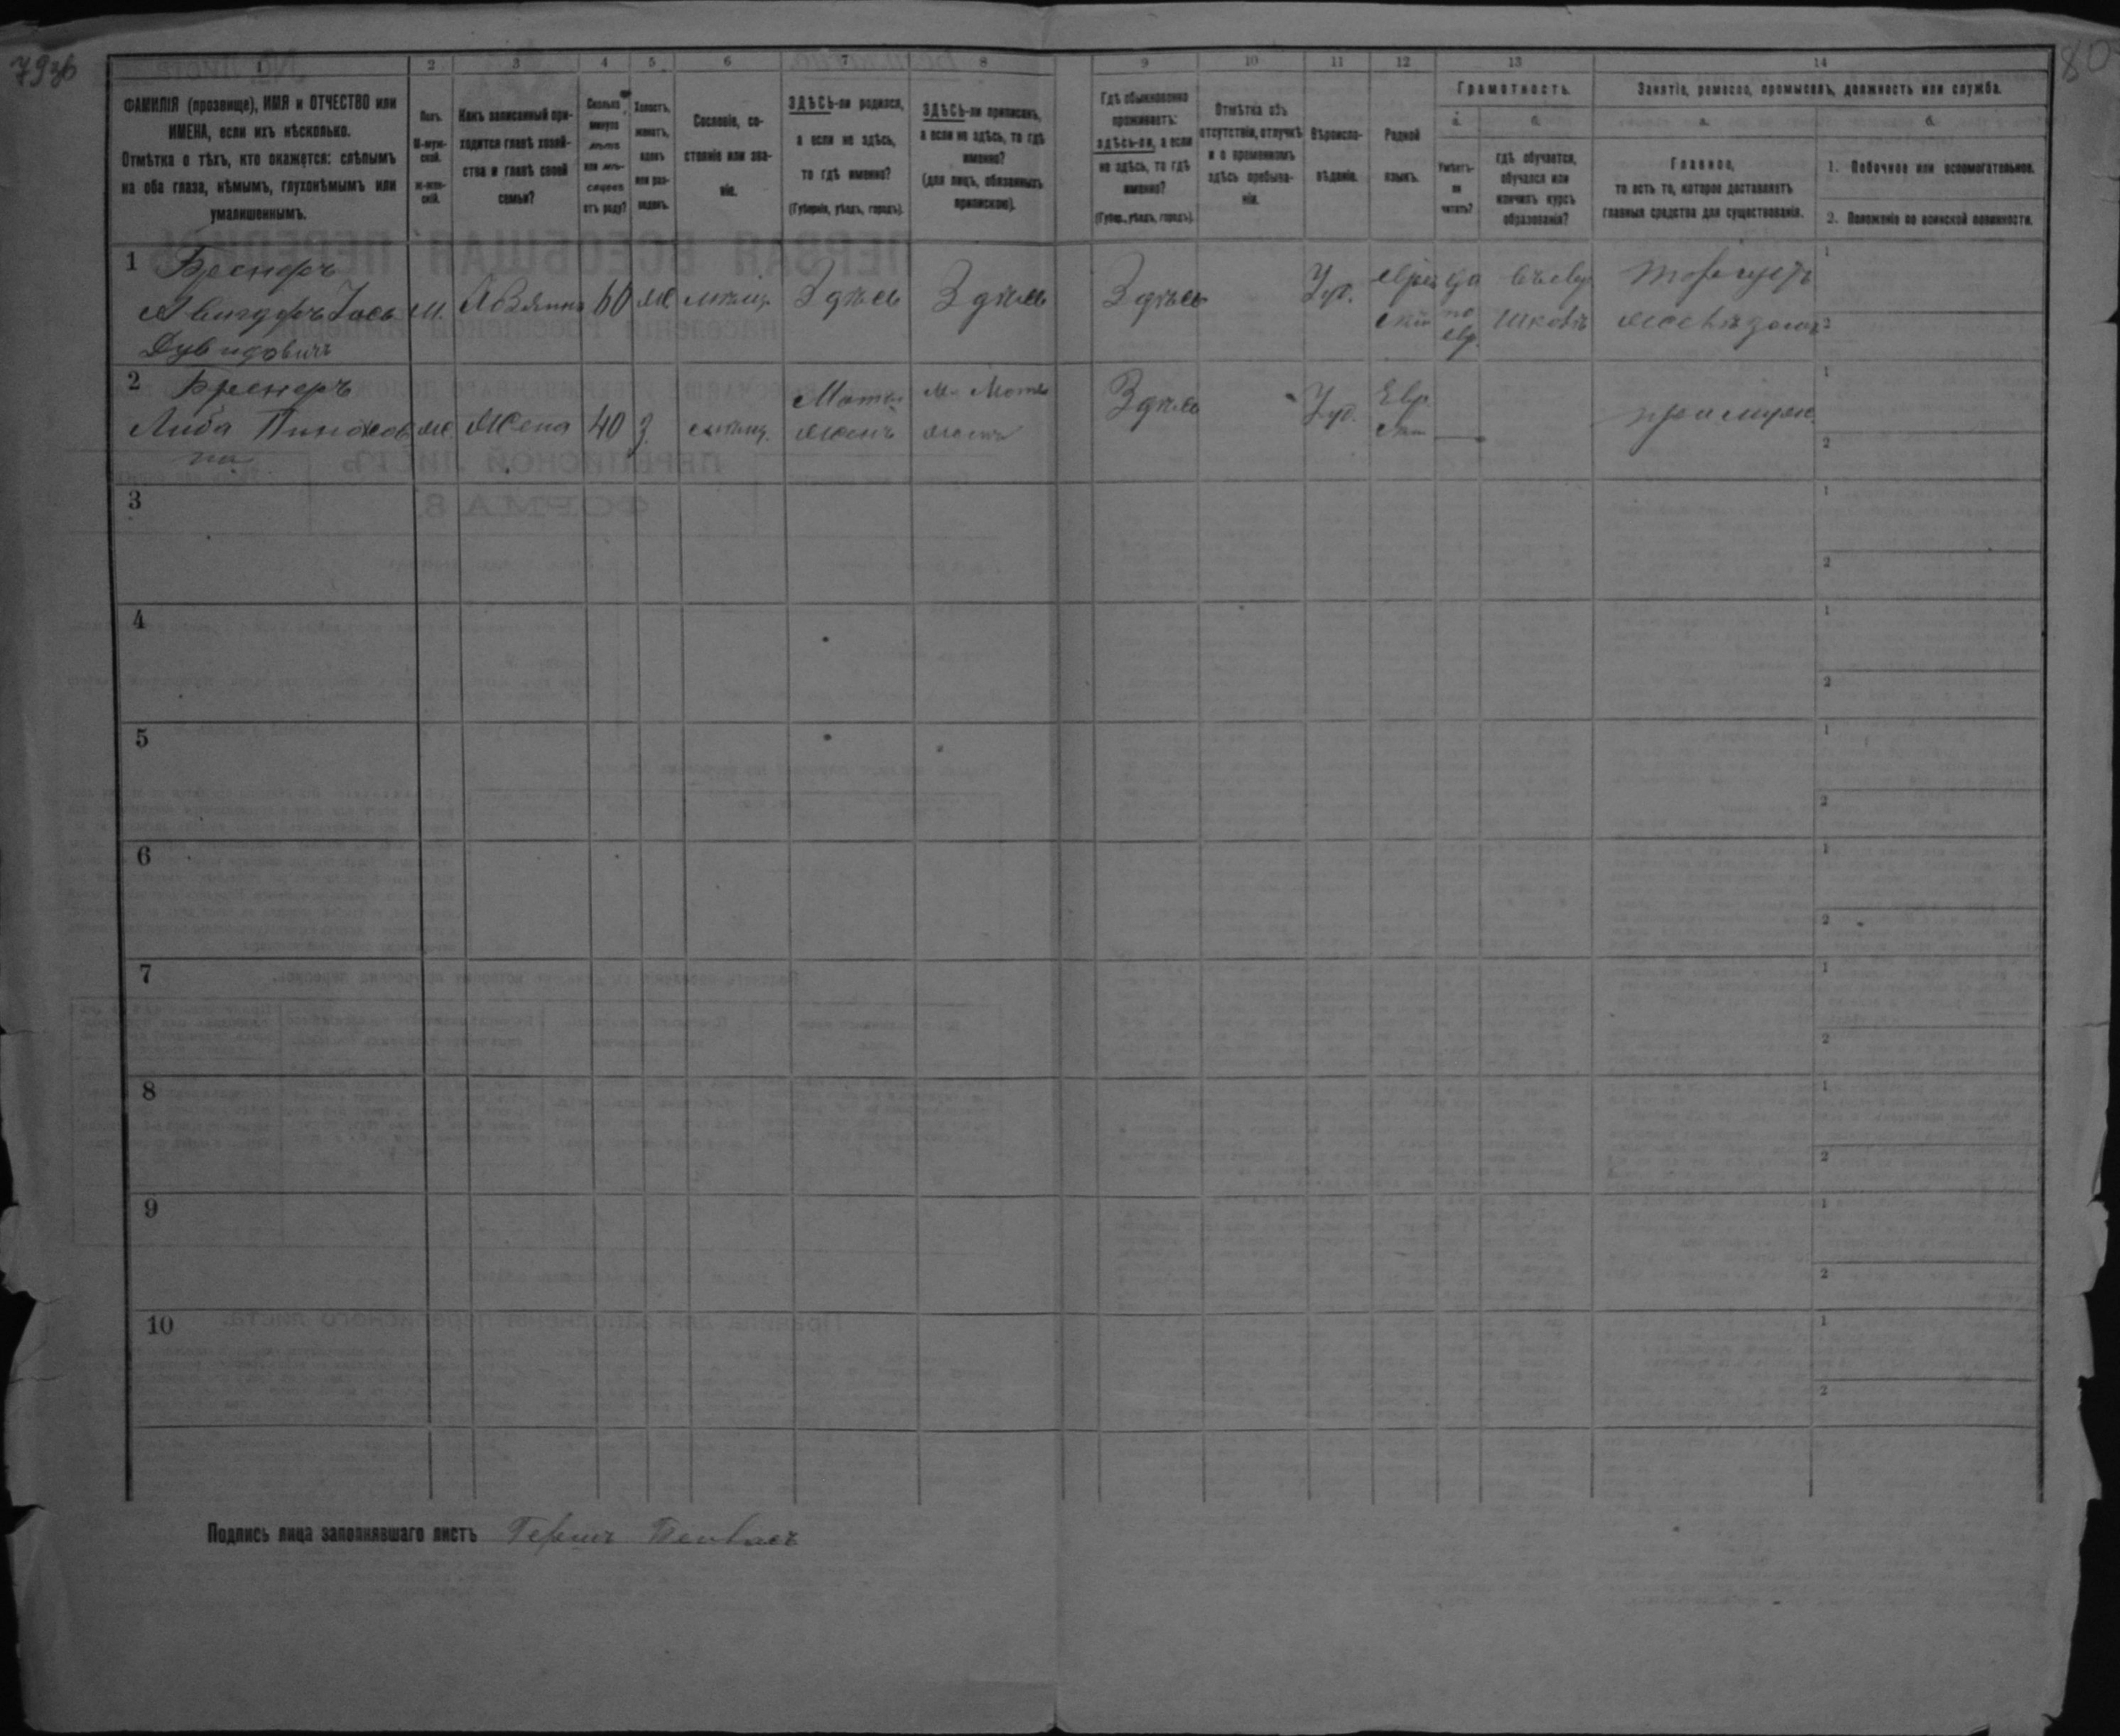 79 об
80
1 2 3 4 5 6 7 8 9 10 11 12 13 14
ФАМИЛІЯ (прозвище), ИМЯ и ОТЧЕСТВО или
ИМЕНА, если ихъ нѣсколько.
Отмѣтка о тѣхъ, кто окажется: слѣпымъ
на оба глаза, нѣмымъ, глухонѣмымъ или
умалишеннымъ.
Полъ.
М-муж-
ской.
ж-жен-
скій.
Какъ записанный при-
ходится главѣ хозяй-
ства и главѣ своей
семьи?
Сколько
минуло
лѣтъ
или мѣ-
сяцевъ
отъ роду?
Холостъ,
женатъ,
вдовъ
или раз-
веденъ.
Сословіе, со-
стояніе или зва-
ніе.
ЗДѢСЬ-ли родился,
а если не здѣсь,
то гдѣ именно?
(Губернія, уѣздъ, городъ).
ЗДѢСЬ-ли приписанъ,
а если не здѣсь, то гдѣ
именно?
(для лицъ, обязанныхъ
припискою).
Гдѣ обыкновенно
проживаетъ:
здѣсь-ли, а если
не здѣсь, то гдѣ
именно?
(Губер., уѣздъ, городъ).
Отмѣтка объ
отсутствіи, отлучкѣ
и о временномъ
здѣсь пребыва-
ніи.
Вѣроиспо-
вѣданіе.
Родной
языкъ.
Грамотность.
а.
Умѣетъ-
ли
читать?
б.
гдѣ обучается,
обучался или
кончилъ курсъ
образованія?
Занятіе, ремесло, промыселъ, должность или служба.
а.
Главное,
то есть то, которое доставляетъ
главныя средства для существованія.
б.
1. Побочное или вспомогательное.
2. Положеніе по воинской повинности.
1 Бренеръ
Авигдоръ Іось
Дувидовичъ
м. хозяинъ 60 ж мѣщ. Здѣсь Здѣсь Здѣсь Іуд. еврей
ский да
по
евр. въ евр.
школѣ
1
2
2 Бренеръ
Либа Пинохов
на
ж. жена 40 з. мѣщ. Здѣсь Іуд. Евр.
ский — при мужѣ
1
2
3
1
2
4
1
2
5
1
2
6
1
2
7
1
2
8
1
2
9
1
2
10
1
2
Подпись лица заполнявшаго листъ Гершъ